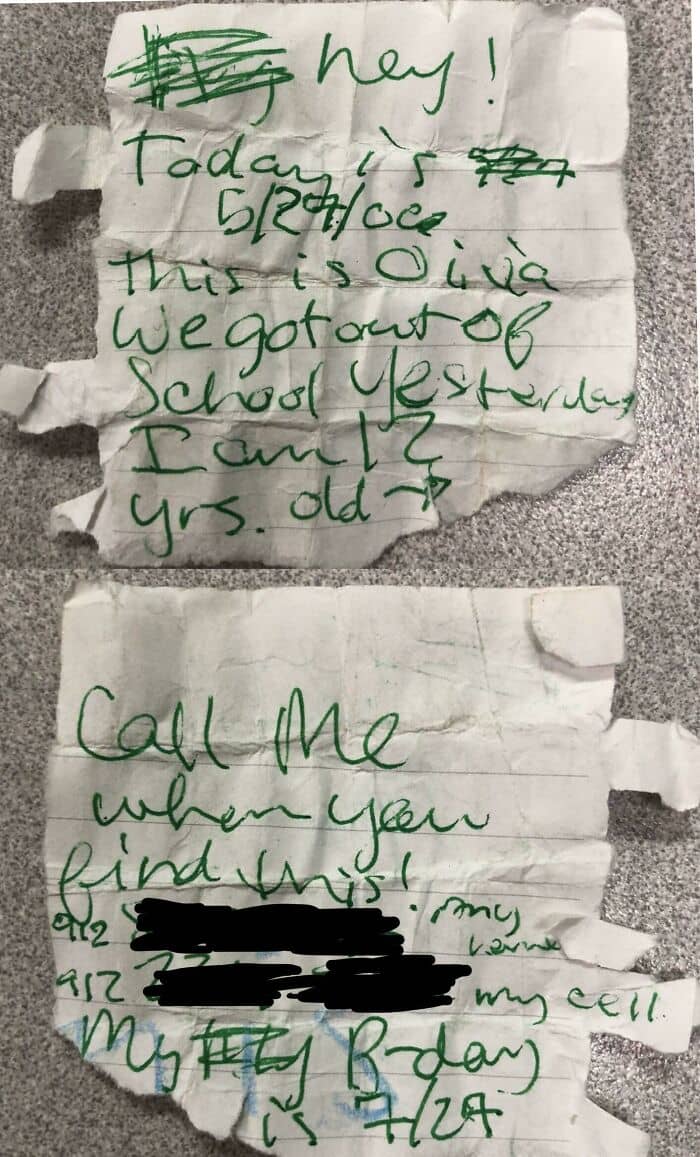 hey!
Today is
5/27/06
This is Olivia
We got out of
School yesterday
I am 12
yrs. old →
Call Me
when you
find this!
912
912 my cell.
My B-day
is 7/27